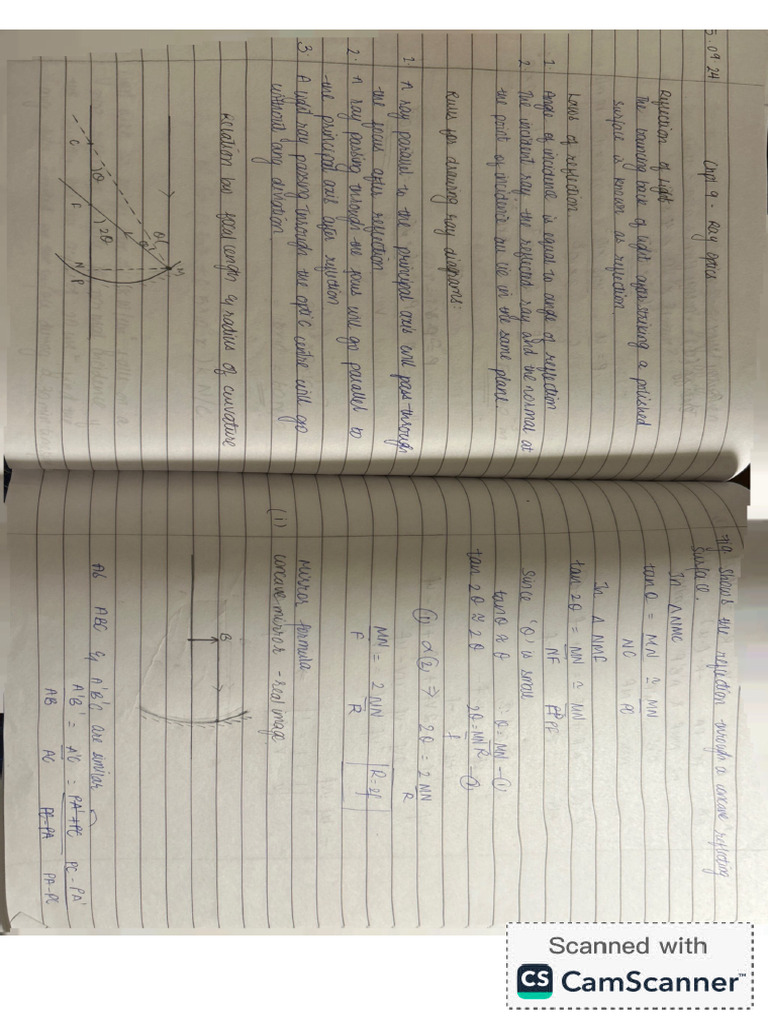 5.09.24
Chpt 9 - Ray optics
Reflection of light
The bouncing back of light after striking a polished
surface is known as reflection.
Laws of reflection
1 Angle of incidence is equal to angle of reflection
2 The incident ray, the reflected ray and the normal at
the point of incidence all lie in the same plane
Rules for drawing ray diagrams:
1. A ray parallel to the principal axis will pass through
the focus after reflection
2. A ray passing through the focus will go parallel to
the principal axis after reflection
3. A light ray passing through the optic centre will go
without any deviation
Relation b/w focal length & radius of curvature
θ
θ
M
C
θ
F
2θ
N
P
Fig. shows the reflection through a concave reflecting
surface.
In Δ NMC
tan θ = MN ≃ MN
NC PC
In Δ NMF
tan 2θ = MN ≃ MN
NF PF
Since 'θ' is small
tan θ ≈ θ ∴ θ = MN - (1)
R
tan 2θ ≈ 2θ 2θ = MN - (2)
f
(1) & (2) ⇒ 2θ = 2 MN
R
MN = 2 MN
F R
R = 2f
Mirror formula
(i) concave mirror - real image
B
ABC & A'B'C are similar
A'B' = A'C = PC - PA'
AB AC PA - PC